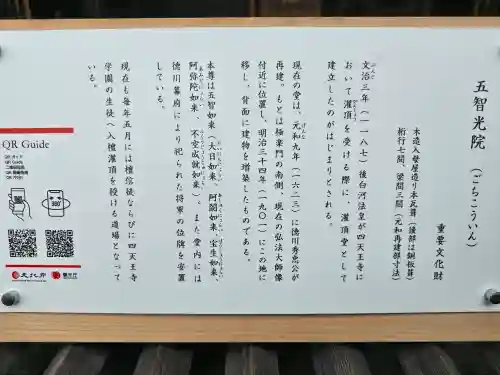 五智光院（ごちこういん）
重要文化財
木造入母屋造り本瓦葺（後部は銅板葺）
桁行七間、梁間三間（元和再建部寸法）
文治三年（一一八七）後白河法皇が四天王寺に
おいて灌頂を受ける際に、灌頂堂として
建立したのがはじまりとされる。
現在の堂は、元和九年（一六二三）に徳川秀忠公が
再建。もとは極楽門の南側、現在の弘法大師像
付近に位置し、明治三十四年（一九〇一）にこの地に
移し、背面に建物を増築したものである。
本尊は五智如来（大日如来、阿閦如来、宝生如来、
阿弥陀如来、不空成就如来）。また堂内には
徳川幕府により祀られた将軍の位牌を安置
している。
現在も毎年五月には檀信徒ならびに四天王寺
学園の生徒へ入檀灌頂を授ける道場となって
いる。
QR Guide
QRガイド
QR Guide
文化庁
観光庁